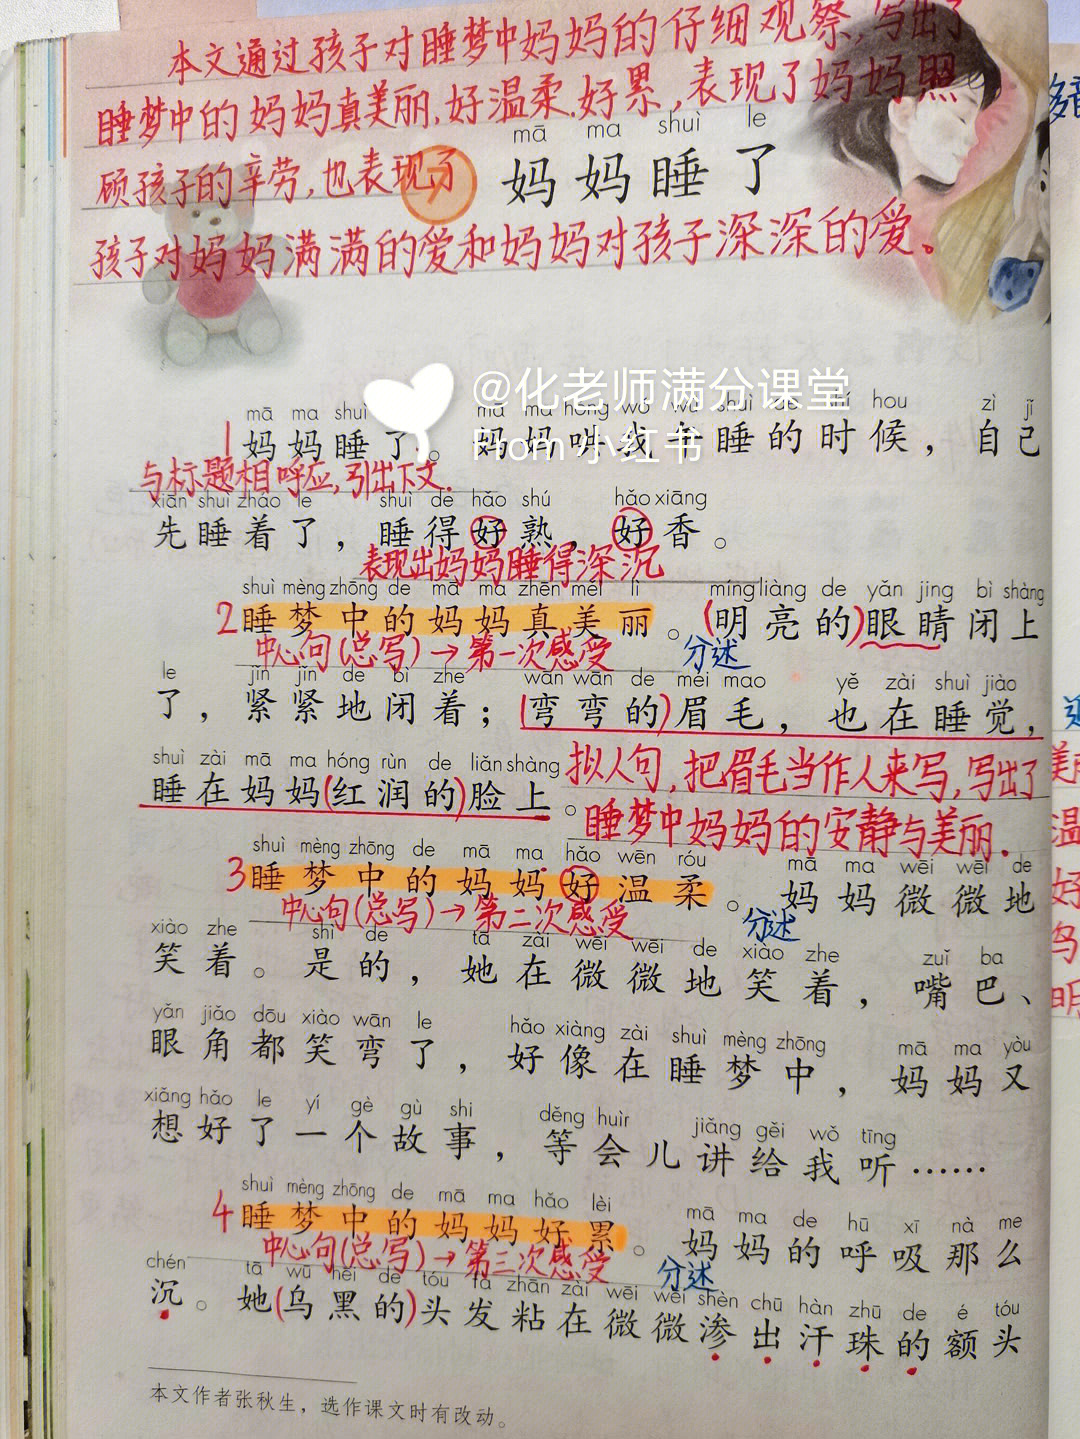 本文通过孩子对睡梦中妈妈的仔细观察,写出了
睡梦中的妈妈真美丽,好温柔.好累,表现了妈妈照
顾孩子的辛劳,也表现了
孩子对妈妈满满的爱和妈妈对孩子深深的爱。
mā ma shuì le
7 妈妈睡了
@化老师满分课堂
From 小红书
mā ma shuì mā ma hǒng wǒ wǔ shuì de shí hou zì jǐ
1 妈妈睡了。妈妈哄我午睡的时候,自己
与标题相呼应,引出下文.
xiān shuì zháo le shuì de hǎo shú hǎo xiāng
先睡着了,睡得好熟,好香。
表现出妈妈睡得深沉
shuì mèng zhōng de mā ma zhēn měi lì míng liàng de yǎn jing bì shàng
2 睡梦中的妈妈真美丽。(明亮的)眼睛闭上
中心句(总写)→第一次感受 分述
le jǐn jǐn de bì zhe wān wān de méi mao yě zài shuì jiào
了,紧紧地闭着;(弯弯的)眉毛,也在睡觉,
shuì zài mā ma hóng rùn de liǎn shàng
睡在妈妈(红润的)脸上。
拟人句,把眉毛当作人来写,写出了
睡梦中妈妈的安静与美丽.
shuì mèng zhōng de mā ma hǎo wēn róu mā ma wēi wēi de
3 睡梦中的妈妈好温柔。妈妈微微地
中心句(总写)→第二次感受 分述
xiào zhe shì de tā zài wēi wēi de xiào zhe zuǐ ba
笑着。是的,她在微微地笑着,嘴巴、
yǎn jiǎo dōu xiào wān le hǎo xiàng zài shuì mèng zhōng mā ma yòu
眼角都笑弯了,好像在睡梦中,妈妈又
xiǎng hǎo le yí gè gù shi děng huìr jiǎng gěi wǒ tīng
想好了一个故事,等会儿讲给我听……
shuì mèng zhōng de mā ma hǎo lèi mā ma de hū xī nà me
4 睡梦中的妈妈好累。妈妈的呼吸那么
中心句(总写)→第三次感受 分述
chén tā wū hēi de tóu fa zhān zài wēi wēi shèn chū hàn zhū de é tóu
沉。她(乌黑的)头发粘在微微渗出汗珠的额头
本文作者张秋生,选作课文时有改动。
美
温
好
乌
明